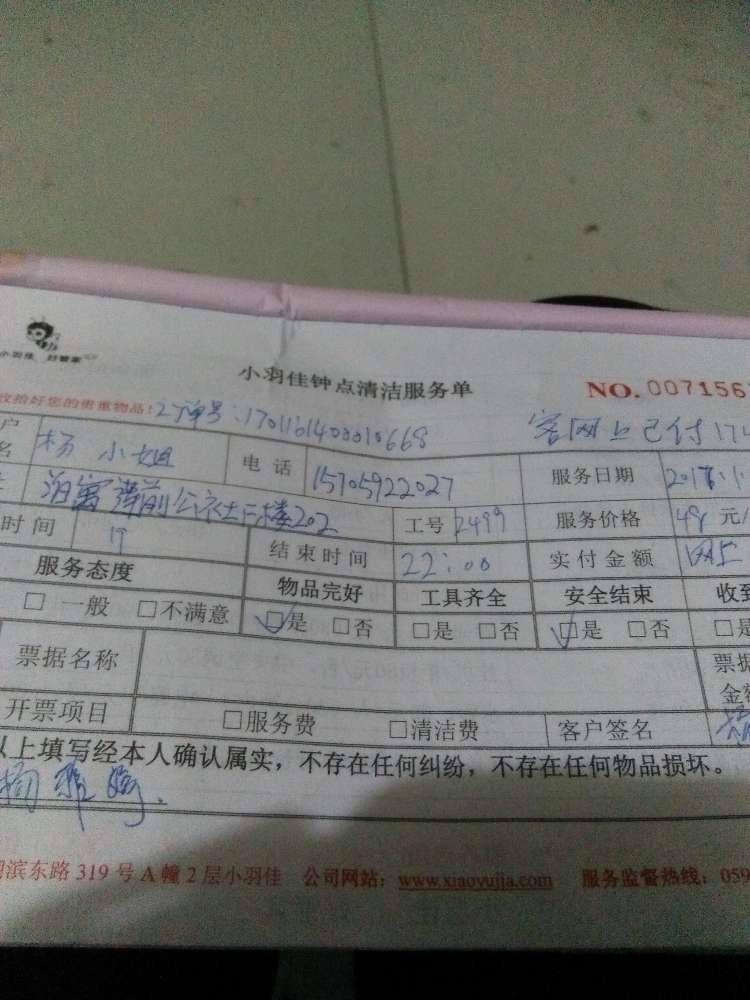 小羽佳 好管家
小羽佳钟点清洁服务单
NO. 007156
收拾好您的贵重物品! 订单号:170116140010668 客网上已付171
户
名 杨小姐 电话 15705922027 服务日期 2017.1.
前公社二楼202 工号 2499 服务价格 48 元/
时间 19 结束时间 22:00 实付金额
服务态度 物品完好 工具齐全 安全结束 收到
□一般 □不满意 ☑是 □否 □是 □否 ☑是 □否 □是
票据名称 票据
金额
开票项目 □服务费 □清洁费 客户签名
以上填写经本人确认属实,不存在任何纠纷,不存在任何物品损坏。
滨东路 319 号 A 幢 2 层小羽佳 公司网站:www.xiaoyujia.com 服务监督热线:059